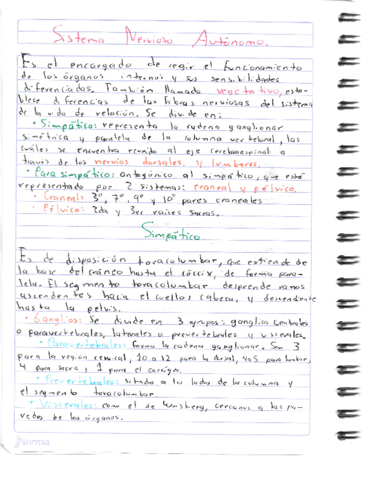 Sistema Nervioso Autónomo.
Es el encargado de regir el funcionamiento
de los órganos internos y sus sensibilidades
diferenciadas. También llamado vegetativo, esta-
blese diferencias de las fibras nerviosas del sistema
de la vida de relación. Se divide en:
• Simpático: representa la cadena ganglionar
simétrica y paralela de la columna vertebral, las
cuáles se encuentra reunida al eje cerebroespinal a
través de los nervios dorsales y lumbares.
• Parasimpático: antagónico al simpático, que está
representado por 2 sistemas: craneal y pélvico.
• Craneal: 3°, 7°, 9° y 10° pares craneales
• Pélvico: 2da y 3er raíces sacras.
Simpático
Es de disposición toracolumbar, que estiende de
la base del cráneo hasta el cóccix, de forma para-
lela. El segmento toracolumbar desprende ramos
ascendentes hacia el cuello y cabeza, y descendente
hasta la pelvis.
• Ganglios: Se divide en 3 grupos: ganglios centrales
o paravertebrales, laterales o prevertebrales y viscerales.
• Paravertebrales: forma la cadena ganglionar. Son 3
para la región cervical, 10 a 12 para la dorsal, 4 o 5 para lumbar,
4 para sacra y 1 para el coccígeo.
• Prevertebrales: situado a los lados de la columna y
el segmento toracolumbar.
• Viscerales: como el de Wrisberg, cercanos a las pa-
redes de los órganos.
norma